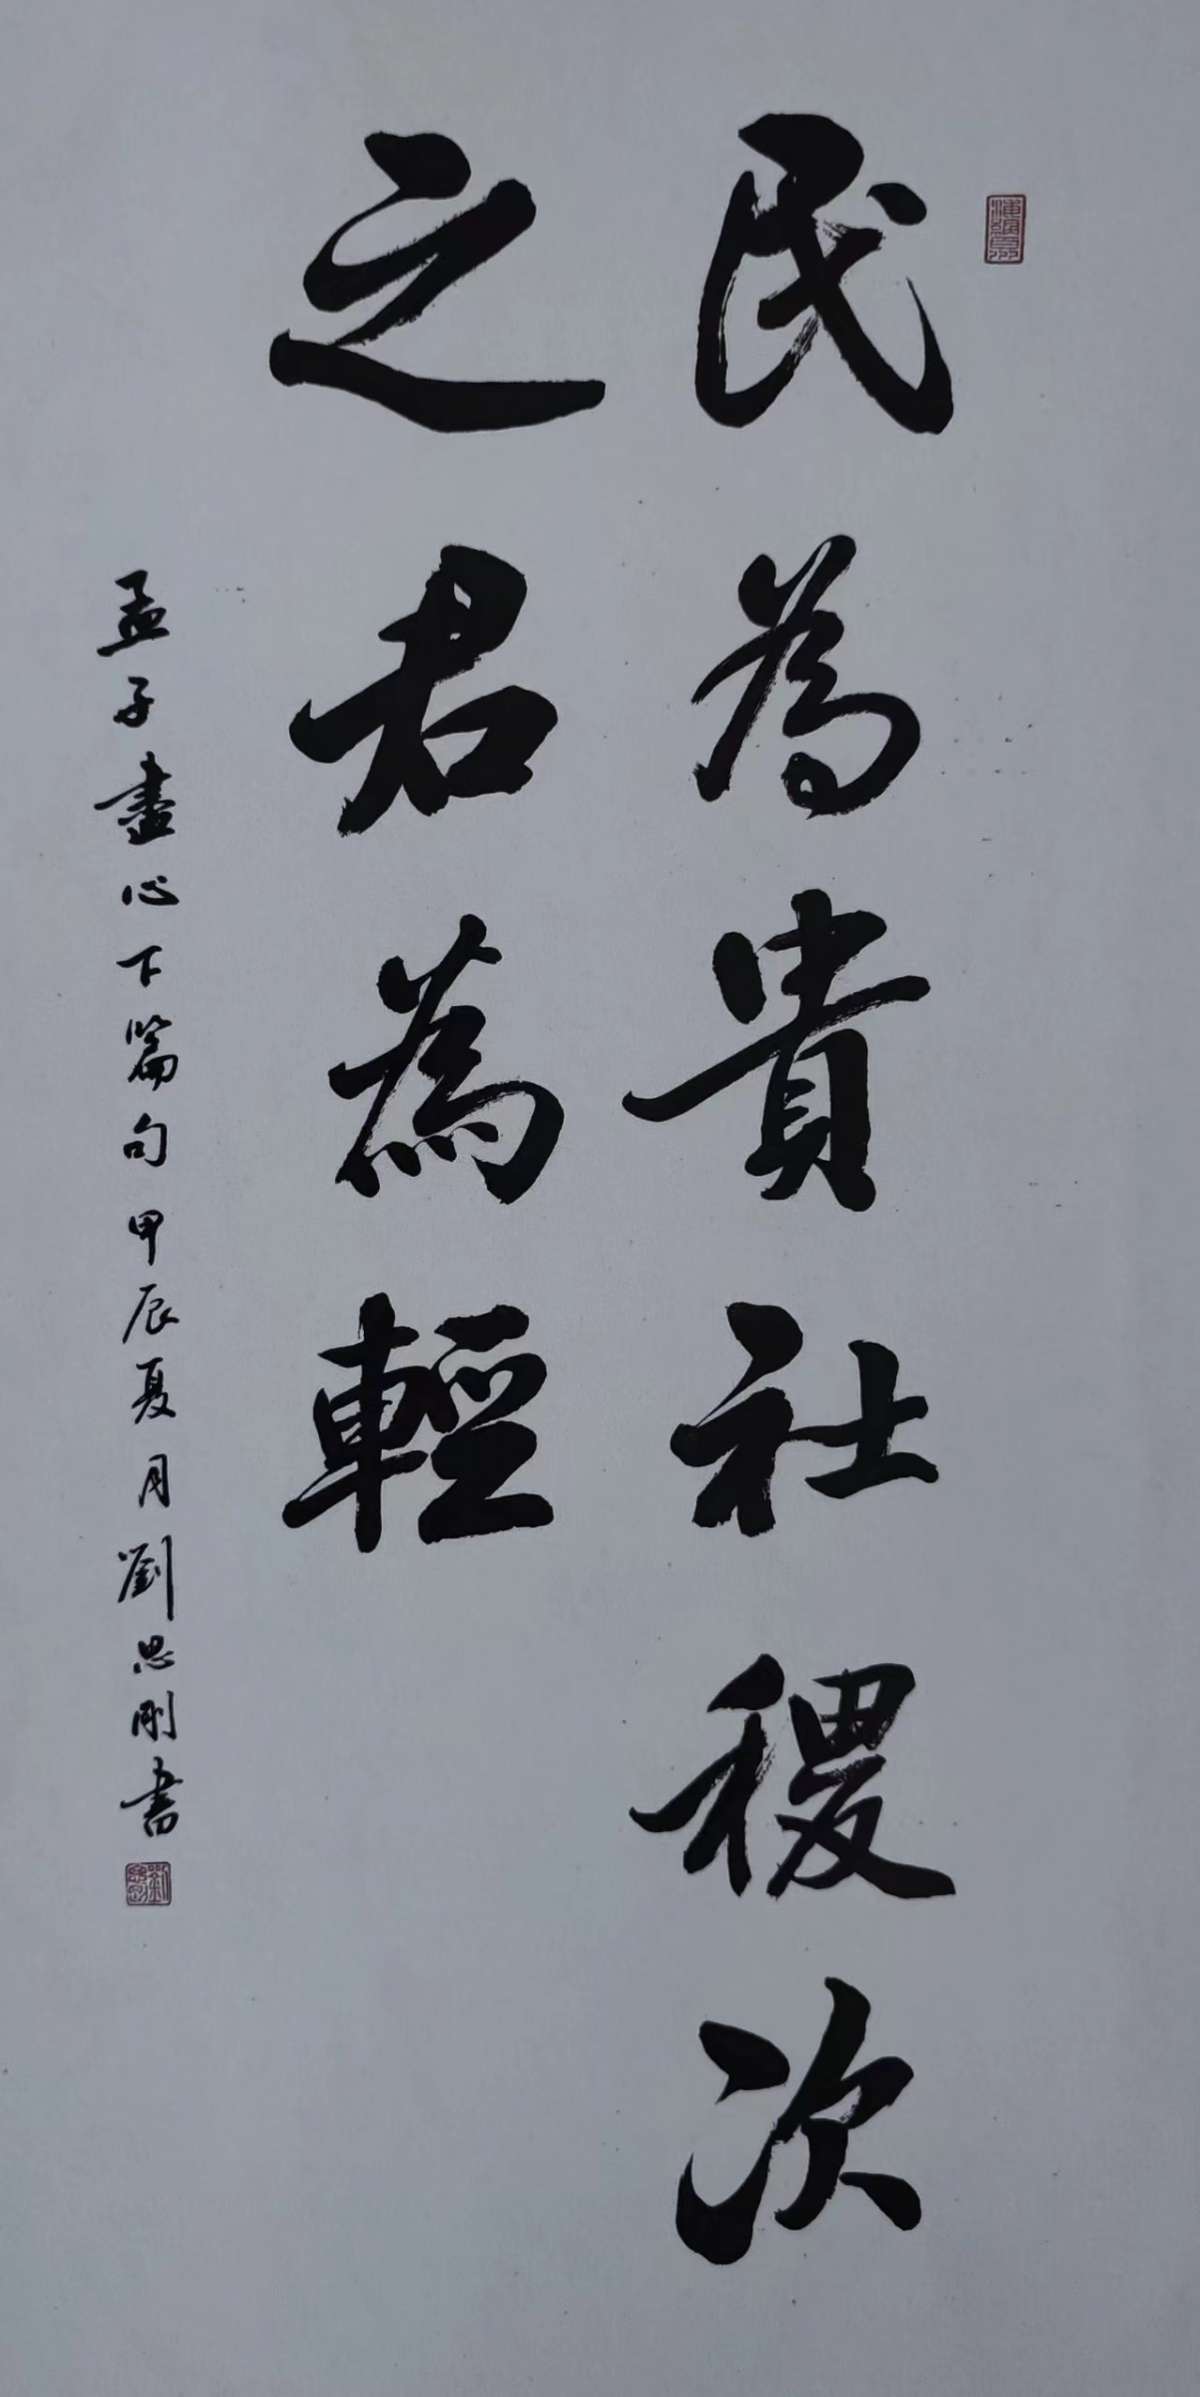 民為貴社稷次
之君為輕
孟子盡心下篇句甲辰夏月劉思剛書